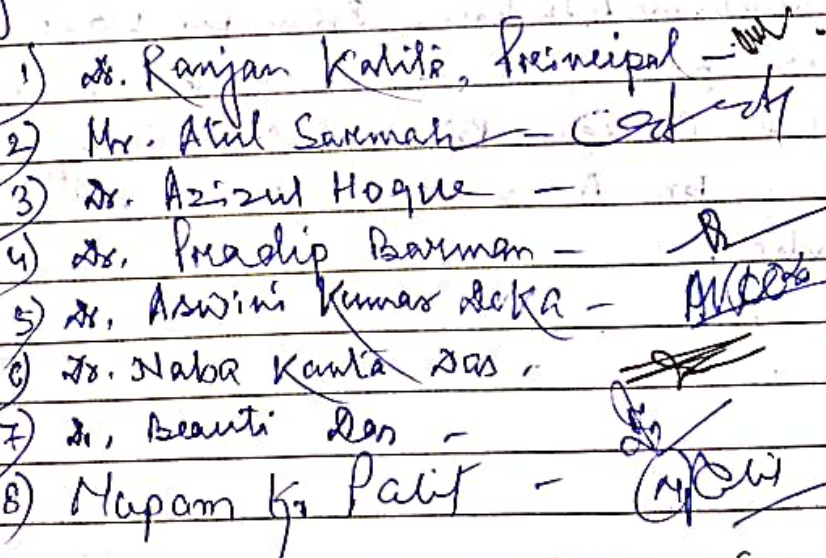 1) Dr. Ranjan Kalita, Principal -
2) Mr. Atul Sarmah -
3) Dr. Azizul Hoque -
4) Dr. Pradip Barman -
5) Dr. Aswini Kumar Deka -
6) Dr. Naba Kanta Das -
7) Dr. Beauti Das -
8) Napam Kr. Palit -